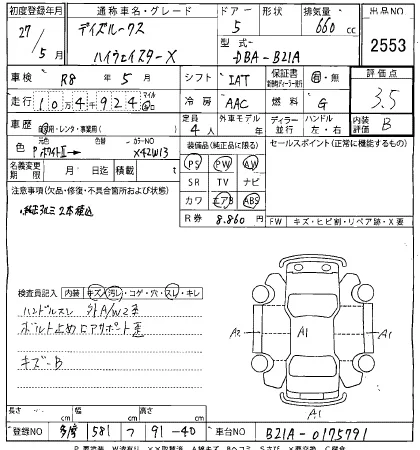 初度登録年月 通称車名・グレード ドアー 形状 排気量 出品NO
27/5月 デイズルークス ハイウェイスターX 5 660cc 2553
型式 DBA-B21A
車検 R8年5月 シフト IAT 保証書 有・無 評価点
走行 10万4924 マイル km 冷房 AAC 燃料 G 3.5
車歴 自家用・レンタ・事業用( ) 定員 4人 外車モデル ディーラー 並行 ハンドル 左・右 内装評価 B
色 元色 PホワイトII → 色替 カラーNO X42W13 装備品(純正品に限る) セールスポイント(正常に機能するもの)
名義変更期限 月 日迄 月迄 PS PW AW
注意事項(欠品・修復・不具合箇所および状態) SR TV ナビ
カワ エアB ABS
R券 8,860円 FW キズ・ヒビ割・リペア跡・X要
検査員記入 内装 キズ・汚レ・コゲ・穴・スレ・キレ
ハンドルスレ 外A/W2キ
ボルト止めロアサポート歪
キズ-B
A2 A1 A2
A1
長さ cm 幅 cm 高さ cm
登録NO 581 つ 91-40 車台NO B21A-0175791